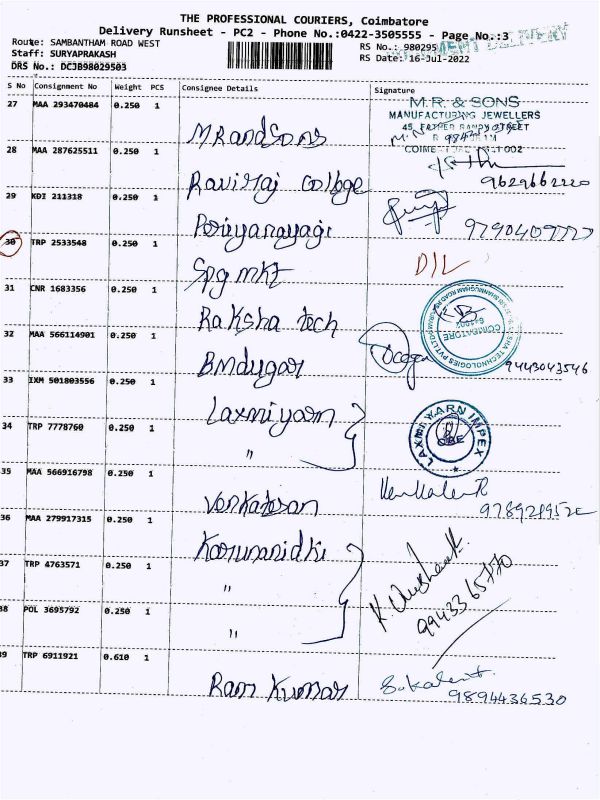 THE PROFESSIONAL COURIERS, Coimbatore
Delivery Runsheet - PC2 - Phone No.:0422-3505555 - Page No.:3
Route: SAMBANTHAM ROAD WEST
RS No.: 980295
Staff: SURYAPRAKASH
RS Date: 16-Jul-2022
DRS No.: DCJB98029503
S No Consignment No Weight PCS Consignee Details Signature
27 MAA 293470484 0.250 1 MRandSons
M.R. & SONS
MANUFACTURING JEWELLERS
28 MAA 287625511 0.250 1 Raviraj college 9629662220
29 KDI 211318 0.250 1 Periyanayagi
30 TRP 2533548 0.250 1 Spg mkt D/L
31 CNR 1683356 0.250 1 Raksha tech
COIMBATORE
32 MAA 566114901 0.250 1 Bmdugar 9443043546
33 IXM 501803556 0.250 1 Laxmiyarn
LAXMI WARN IMPEX
CBE
34 TRP 7778760 0.250 1 "
35 MAA 566916798 0.250 1 Venkatesan
36 MAA 279917315 0.250 1 Karunanidhi
37 TRP 4763571 0.250 1 "
9943365770
38 POL 3695792 0.250 1 "
39 TRP 6911921 0.610 1 Ram Kumar 9894436530